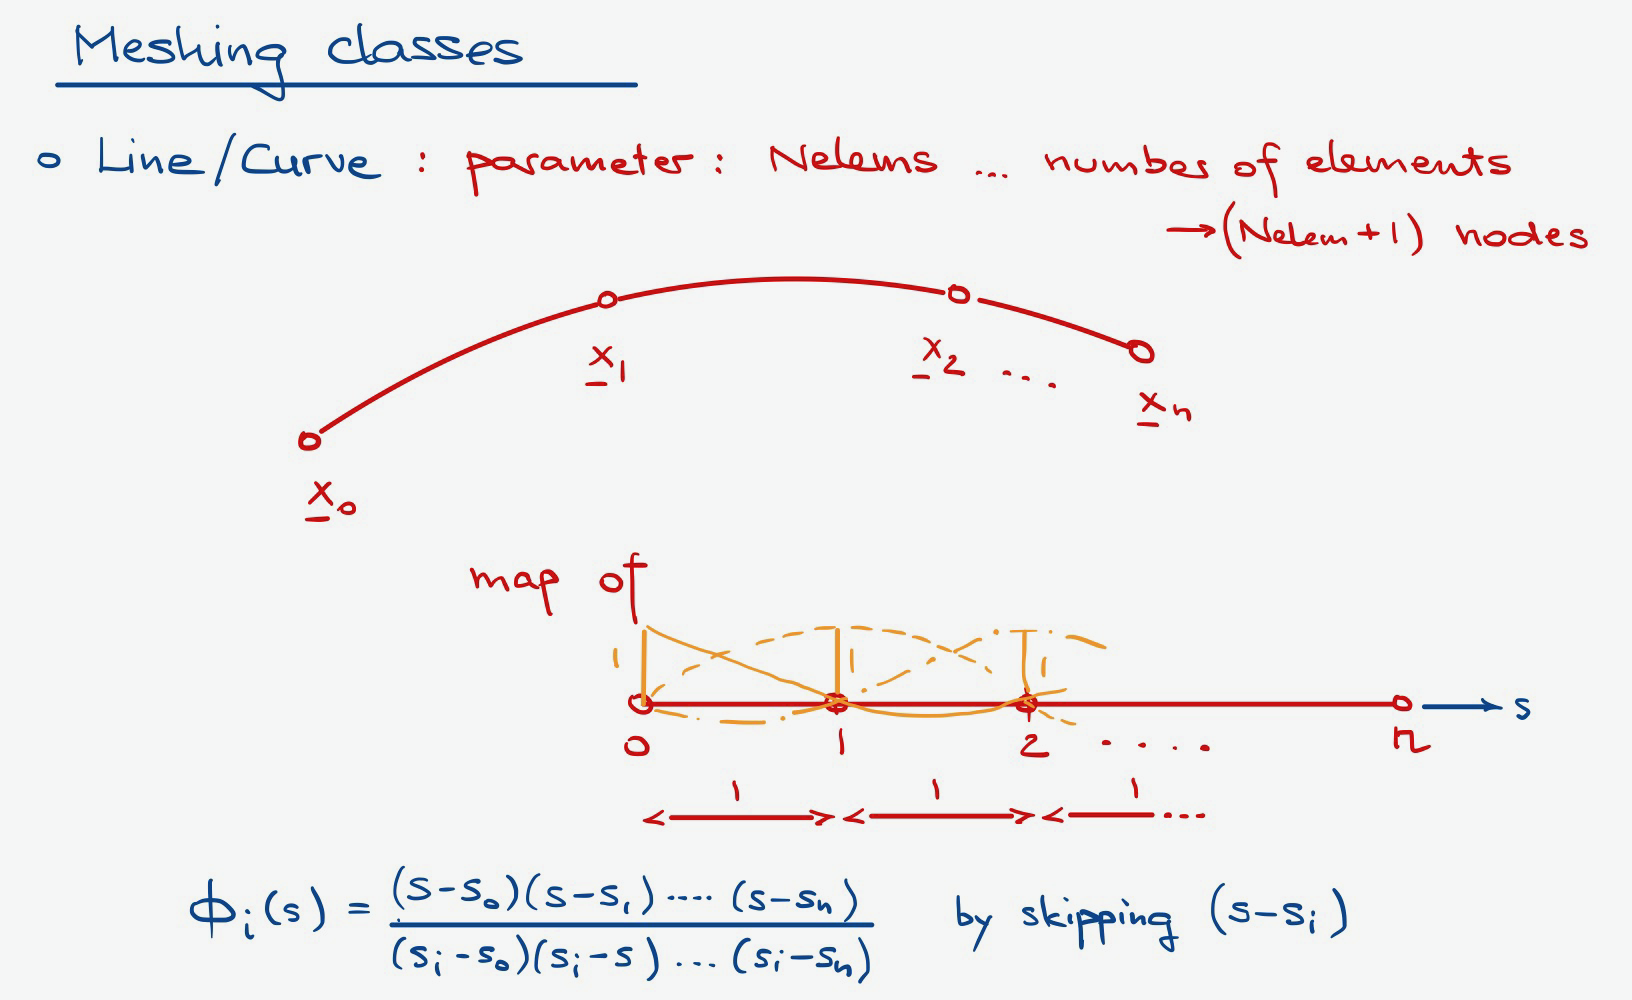 Meshing classes
o Line/Curve : parameter : Nelems ... number of elements
→ (Nelem + 1) nodes
x₁
x₂ ....
xₙ
x₀
map of
1 1 1
s
0 1 2 .... n
1 1 1 ...
ϕᵢ(s) = (s-s₀)(s-s₁)....(s-sₙ) by skipping (s-sᵢ)
(sᵢ-s₀)(sᵢ-s)...(sᵢ-sₙ)